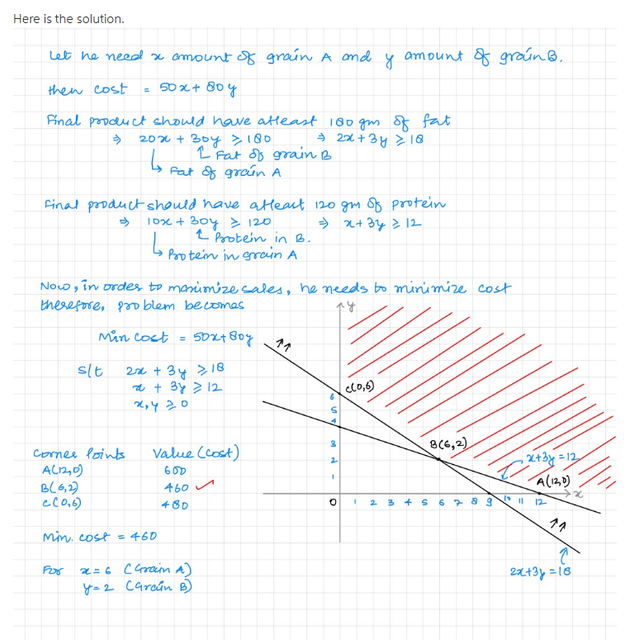 Here is the solution.
Let he need x amount of grain A and y amount of grain B.
then cost = 50x + 80y
Final product should have atleast 180 gm of fat
⇒ 20x + 30y ≥ 180 ⇒ 2x + 3y ≥ 18
Fat of grain B
Fat of grain A
Final product should have atleast 120 gm of protein
⇒ 10x + 30y ≥ 120 ⇒ x + 3y ≥ 12
Protein in B.
Protein in grain A
Now, in order to maximize sales, he needs to minimize cost
therefore, problem becomes
Min cost = 50x + 80y
s/t 2x + 3y ≥ 18
x + 3y ≥ 12
x, y ≥ 0
Corner Points Value (cost)
A(12,0) 600
B(6,2) 460 ✓
C(0,6) 480
Min. cost = 460
For x = 6 (Grain A)
y = 2 (Grain B)
y
C(0,6)
6
5
4
3
2
1
B(6,2)
x+3y = 12
A(12,0)
x
0 1 2 3 4 5 6 7 8 9 10 11 12
2x+3y = 18